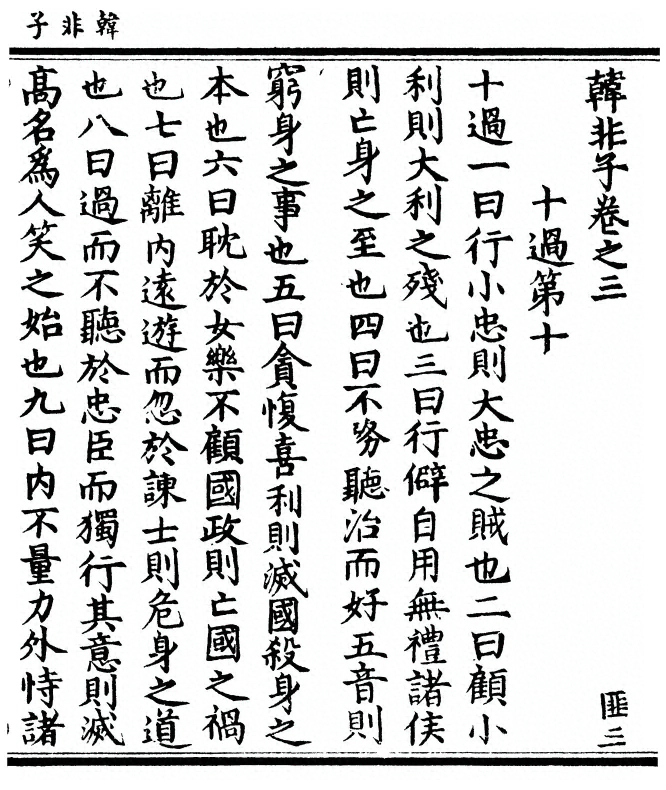 韓非子
韓非子卷之三
匪三
十過第十
十過一曰行小忠則大忠之賊也二曰顧小
利則大利之殘也三曰行僻自用無禮諸侯
則亡身之至也四曰不务聽治而好五音則
窮身之事也五曰貪愎喜利則滅國殺身之
本也六曰耽於女樂不顧國政則亡國之禍
也七曰離內遠遊而忽於諫士則危身之道
也八曰過而不聽於忠臣而獨行其意則滅
高名爲人笑之始也九曰内不量力外恃諸